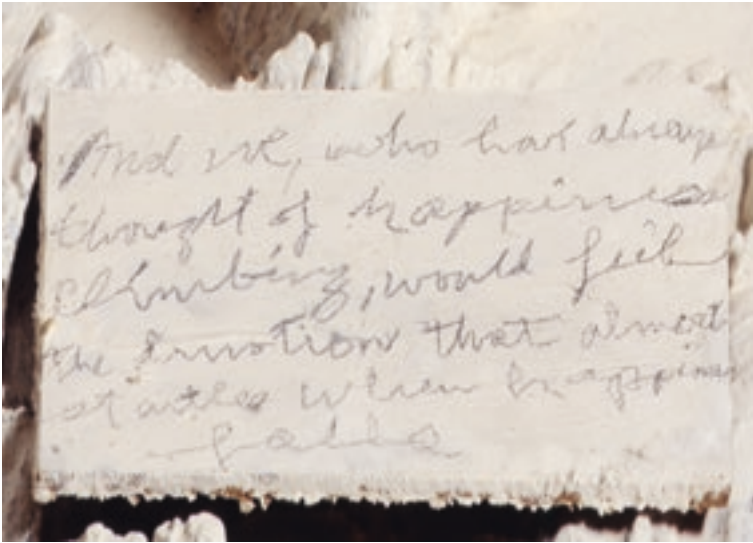 And we, who have always
thought of happiness
climbing, would feel
the emotion that almost
startles when happiness
falls